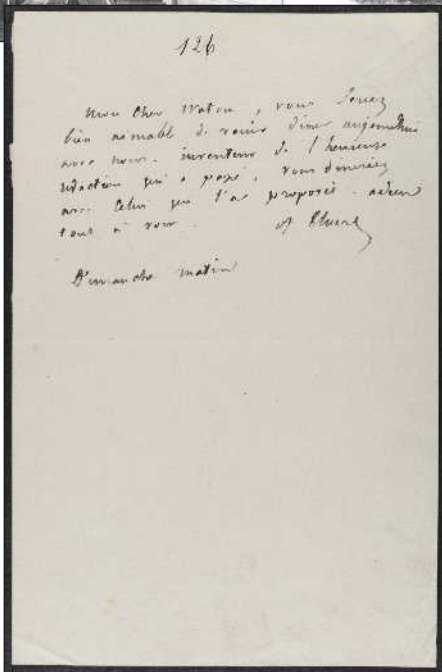 126
Mon cher , vous seriez
bien aimable de venir diner aujourdhui
avec nous. inventeur de l'heureuse
rédaction qui a passé, vous dineriez
avec celui qui l'a proposée. adieu
tout à vous. A Thiers
Dimanche matin